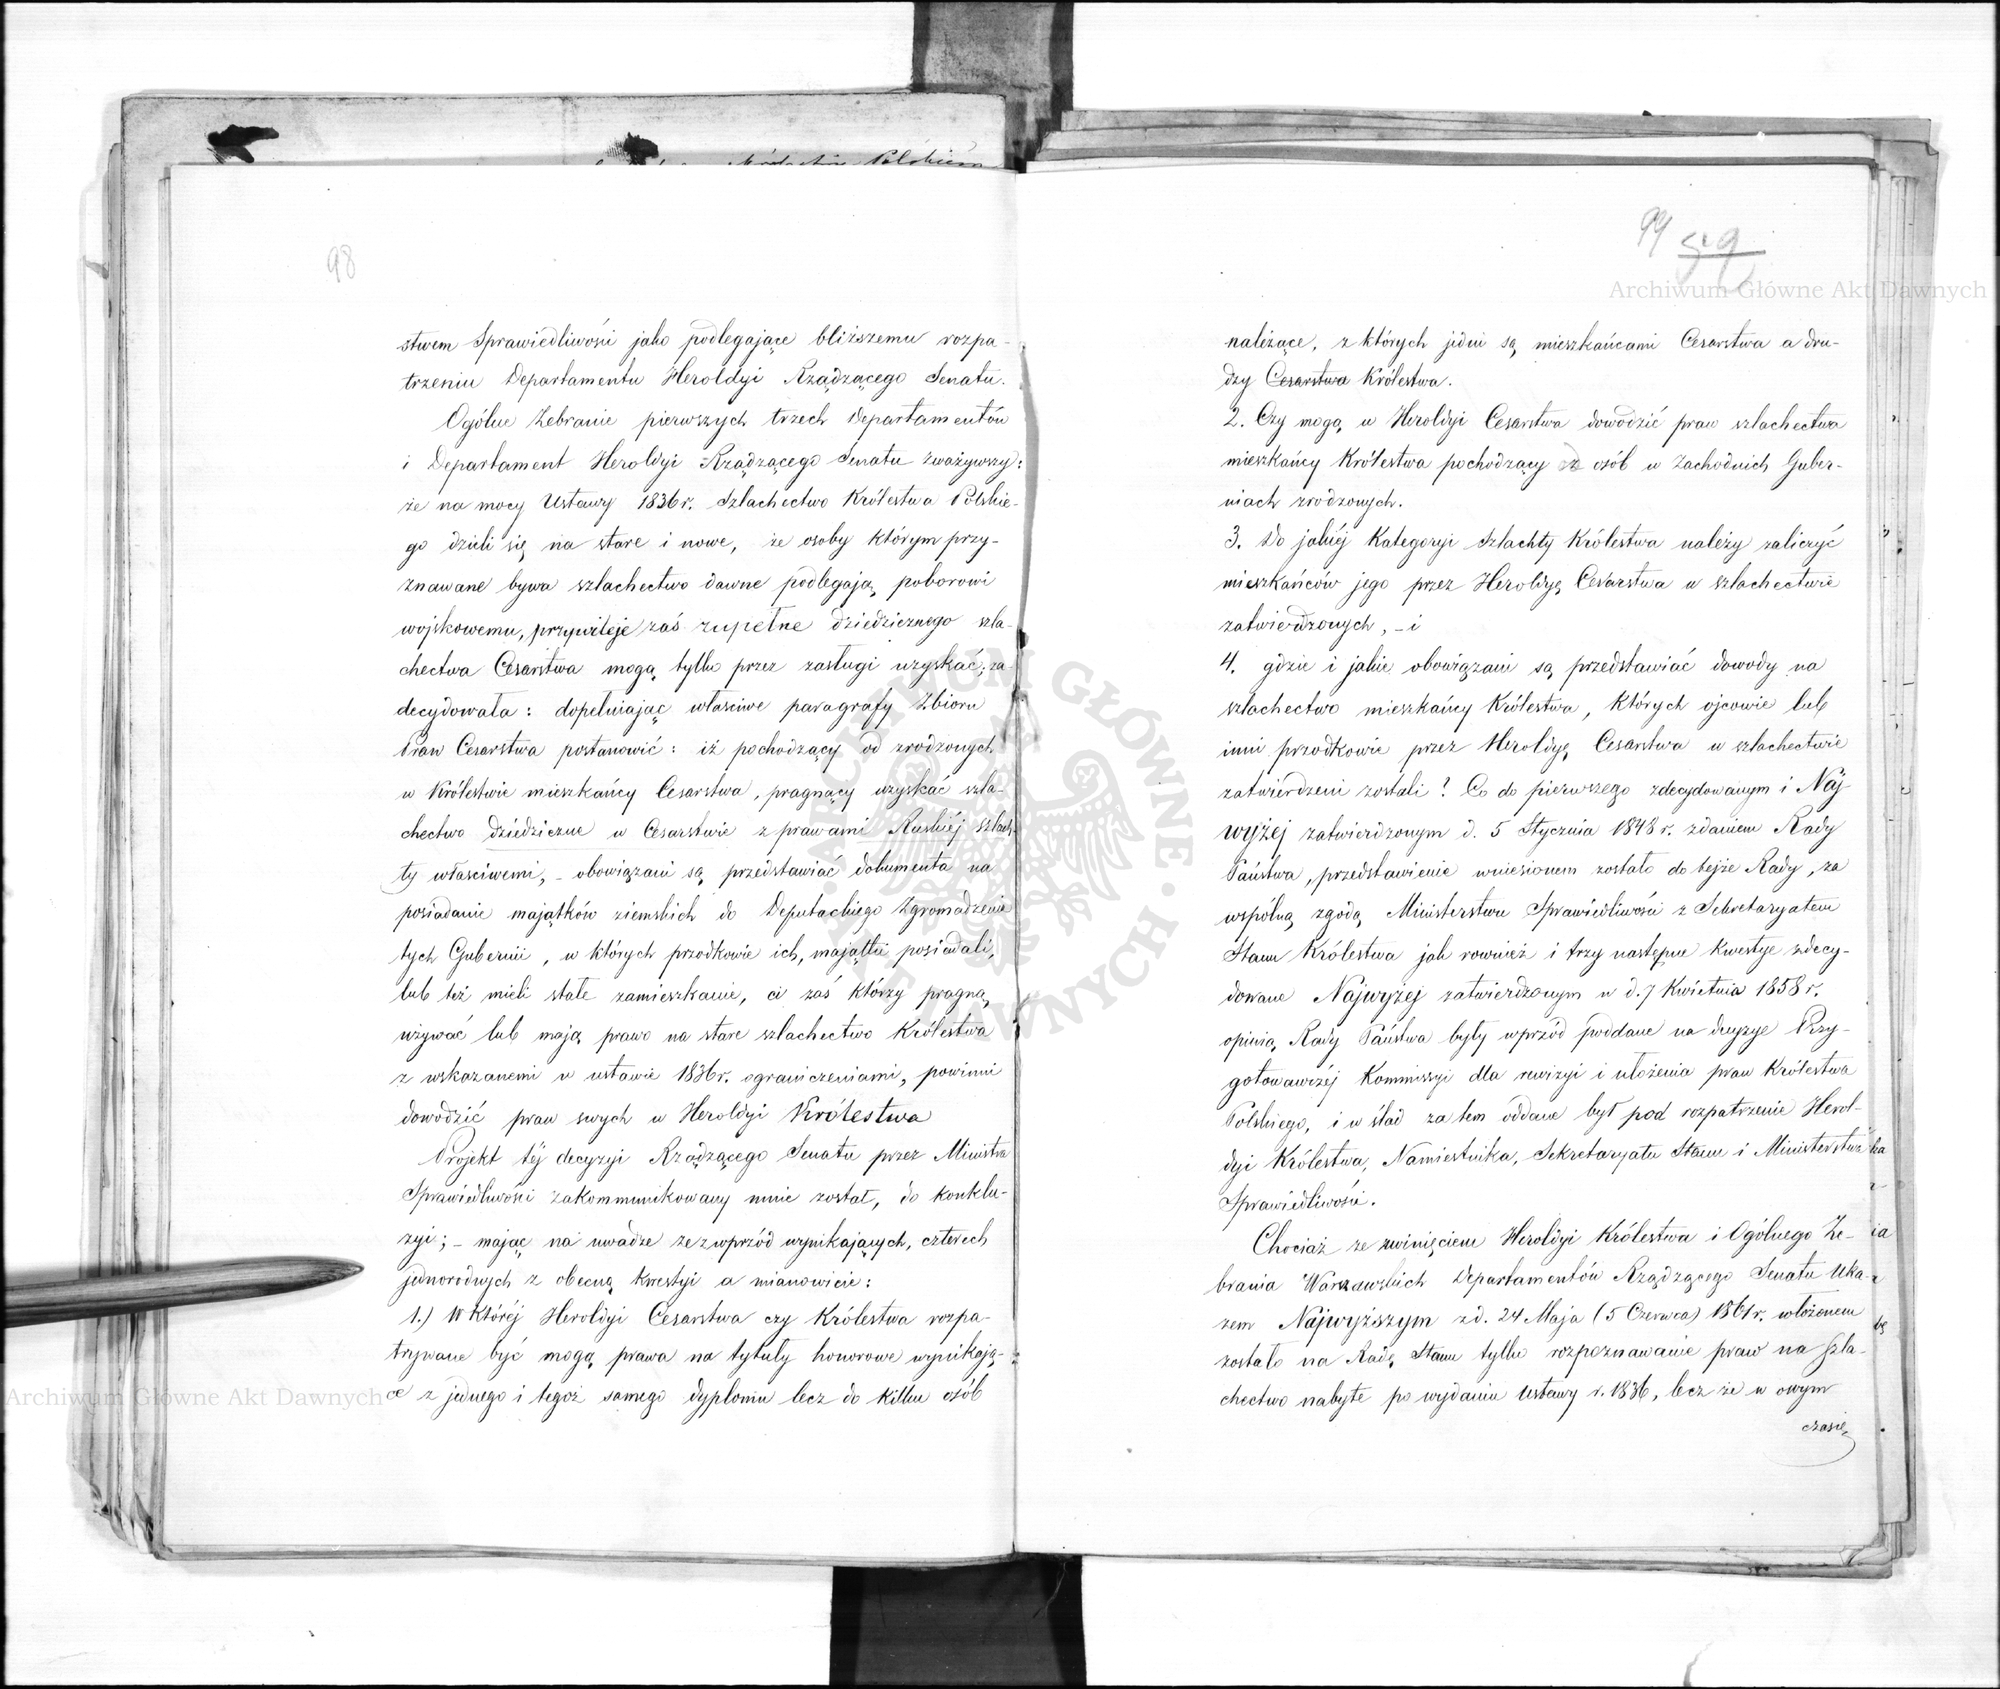 98
stwem Sprawiedliwości jako podlegające bliższemu rozpa-
trzeniu Departamentu Heroldyi Rządzącego Senatu.
Ogólne Zebranie pierwszych trzech Departamentów
i Departament Heroldyi Rządzącego Senatu zważywszy:
że na mocy Ustawy 1836 r. Szlachectwo Królestwa Polskie-
go dzieli się na stare i nowe, że osoby którym przy-
znawane bywa szlachectwo dawne podlegają poborowi
wojskowemu, przywileje zaś zupełne dziedzicznego szla-
chectwa Cesarstwa mogą tylko przez zasługi uzyskać; za-
decydowała: dopełniając właściwe paragrafy Zbioru
Praw Cesarstwa postanowić: iż pochodzący od zrodzonych
w Królestwie mieszkańcy Cesarstwa, pragnący uzyskać szla-
chectwo dziedziczne w Cesarstwie z prawami Ruskiéj szlach-
ty właściwemi, - obowiązani są przedstawiać dokumenta na
posiadanie majątków ziemskich do Deputackiego Zgromadzenia
tych Gubernii, w których przodkowie ich, majątki posiadali,
lub też mieli stałe zamieszkanie, ci zaś którzy pragną
używać lub mają prawo na stare szlachectwo Królestwa
z wskazanemi w ustawie 1836 r. ograniczeniami, powinni
dowodzić praw swych w Heroldyi Królestwa
Projekt téj decyzyi Rządzącego Senatu przez Ministra
Sprawiedliwości zakommunikowany mnie został, do konklu-
zyi; - mając na uwadze ze zwprzód wynikających, czterech
jednorodnych z obecną kwestyi a mianowicie:
1.) W któréj Heroldyi Cesarstwa czy Królestwa rozpa-
trywane być mogą prawa na tytuły honorowe wynikają-
ce z jednego i tegoż samego dyplomu lecz do kilku osób
99
należące, z których jedni są mieszkańcami Cesarstwa a dru-
dzy Cesarstwa Królestwa.
2. Czy mogą w Heroldyi Cesarstwa dowodzić praw szlachectwa
mieszkańcy Królestwa pochodzący od osób w Zachodnich Guber-
niach zrodzonych.
3. Do jakiéj Kategoryi Szlachty Królestwa należy zaliczyć
mieszkańców jego przez Heroldyę Cesarstwa w szlachectwie
zatwierdzonych, - i
4. gdzie i jakie obowiązani są przedstawiać dowody na
szlachectwo mieszkańcy Królestwa, których ojcowie lub
inni przodkowie przez Heroldyę Cesarstwa w szlachectwie
zatwierdzeni zostali? Co do pierwszego zdecydowanym i Naj-
wyżej zatwierdzonym d. 5 Stycznia 1848 r. zdaniem Rady
Państwa, przedstawienie wniesionem zostało do tejże Rady, za
wspólną zgodą Ministerstwa Sprawiedliwości z Sekretaryatem
Stanu Królestwa jak rownież i trzy następne kwestye zdecy-
dowane Najwyżej zatwierdzonym w d. 7 Kwietnia 1858 r.
opinią Rady Państwa były wprzód poddane na decyzye Przy-
gotowawczéj Kommissyi dla rewizyi i ułożenia praw Królestwa
Polskiego, i w ślad za tem oddane był pod rozpatrzenie Herol-
dyi Królestwa, Namiestnika, Sekretaryatu Stanu i Ministerstwa
Sprawiedliwości.
Chociaż ze zwinięciem Heroldyi Królestwa i Ogólnego Ze-
brania Warszawskich Departamentów Rządzącego Senatu Uka-
zem Najwyższym z d. 24 Maja (5 Czerwca) 1861 r. włożonem
zostało na Radę Stanu tylko rozpoznawanie praw na szla-
chectwo nabyte po wydaniu Ustawy r. 1836, lecz że w owym
czasie
Archiwum Główne Akt Dawnych
Archiwum Główne Akt Dawnych
ARCHIWUM GŁÓWNE AKT DAWNYCH